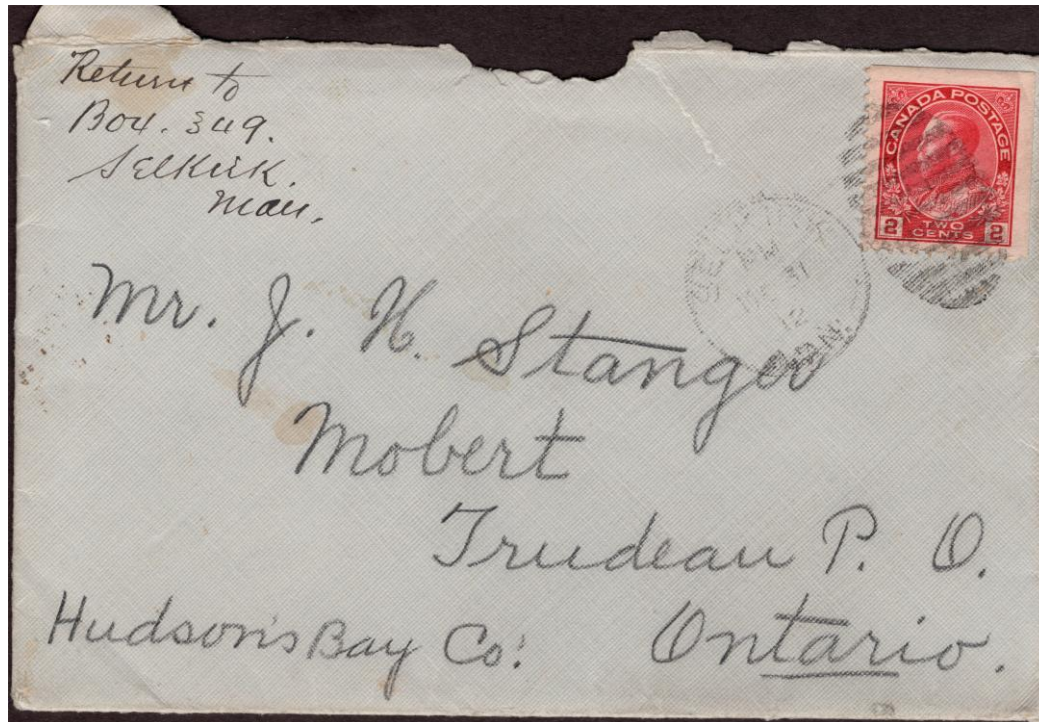 Return to
Box. 349.
Selkirk.
Man.
CANADA POSTAGE
2 TWO CENTS 2
PM
31
12
MAN.
Mr. J. H. Stanger
Mobert
Trudeau P. O.
Hudson's Bay Co.
Ontario.